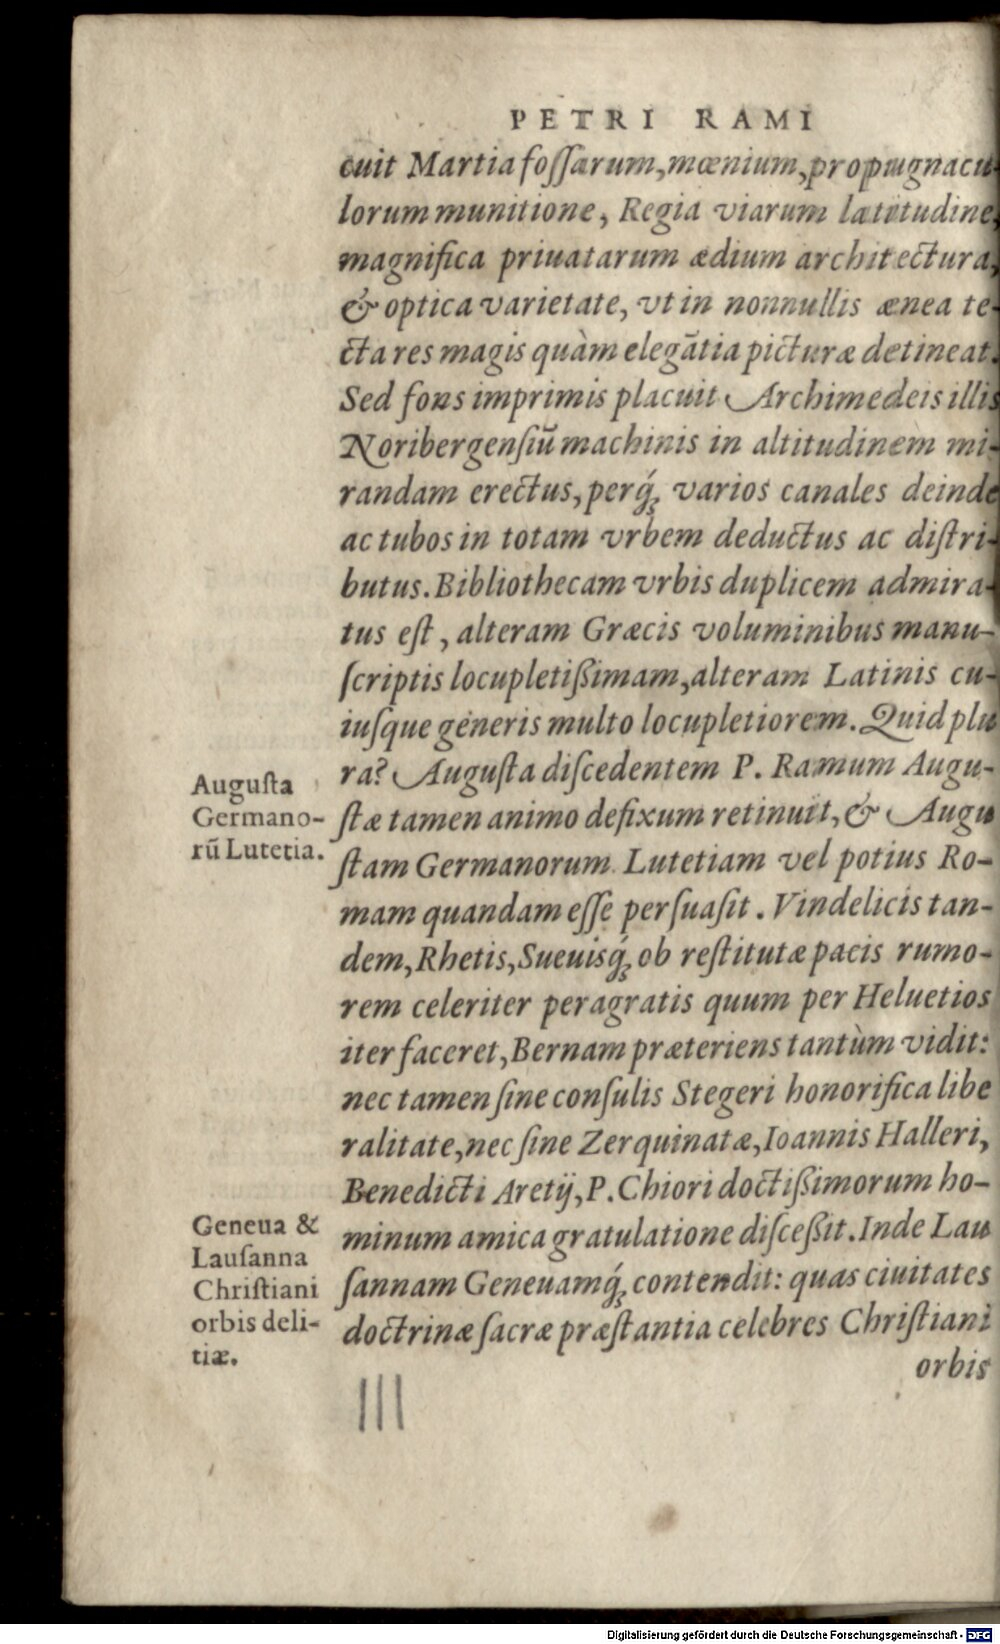 PETRI RAMI
cuit Martia foſſarum, mœnium, propugnacu-
lorum munitione, Regia viarum latitudine,
magnifica priuatarum ædium architectura,
& optica varietate, vt in nonnullis ænea te-
cta res magis quàm elegãtia picturæ detineat.
Sed fons imprimis placuit Archimedeis illis
Noribergenſiũ machinis in altitudinem mi-
randam erectus, perq́; varios canales deinde
ac tubos in totam vrbem deductus ac diſtri-
butus. Bibliothecam vrbis duplicem admira-
tus eſt, alteram Græcis voluminibus manu-
ſcriptis locupletißimam, alteram Latinis cu-
iuſque generis multo locupletiorem. Quid plu
ra? Auguſta diſcedentem P. Ramum Augu-
ſtæ tamen animo defixum retinuit, & Augu
ſtam Germanorum Lutetiam vel potius Ro-
mam quandam eſſe perſuaſit. Vindelicis tan-
dem, Rhetis, Sueuisq́; ob reſtitutæ pacis rumo-
rem celeriter peragratis quum per Heluetios
iter faceret, Bernam præteriens tantùm vidit:
nec tamen ſine conſulis Stegeri honorifica libe
ralitate, nec ſine Zerquinatæ, Ioannis Halleri,
Benedicti Aretij, P. Chiori doctißimorum ho-
minum amica gratulatione diſceßit. Inde Lau
ſannam Geneuamq́; contendit: quas ciuitates
doctrinæ ſacræ præſtantia celebres Chriſtiani
orbis
Auguſta
Germano-
rũ Lutetia.
Geneua &
Lauſanna
Chriſtiani
orbis deli-
tiæ.
Digitalisierung gefördert durch die Deutsche Forschungsgemeinschaft - DFG